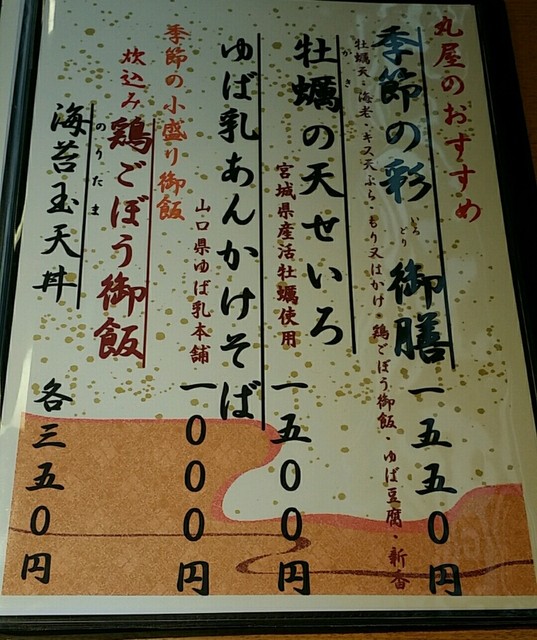 丸屋のおすすめ
季節の彩 御膳 一五五0円
いろどり
牡蠣天・海老・キス天ぷら・もり又はかけ・鶏ごぼう御飯・ゆば豆腐・新香
牡蠣の天せいろ 一五00円
かき
宮城県産活牡蠣使用
ゆば乳あんかけそば 一000円
山口県ゆば乳本舗
季節の小盛り御飯
炊込み鶏ごぼう御飯
海苔玉天丼 各三五0円
のりたま